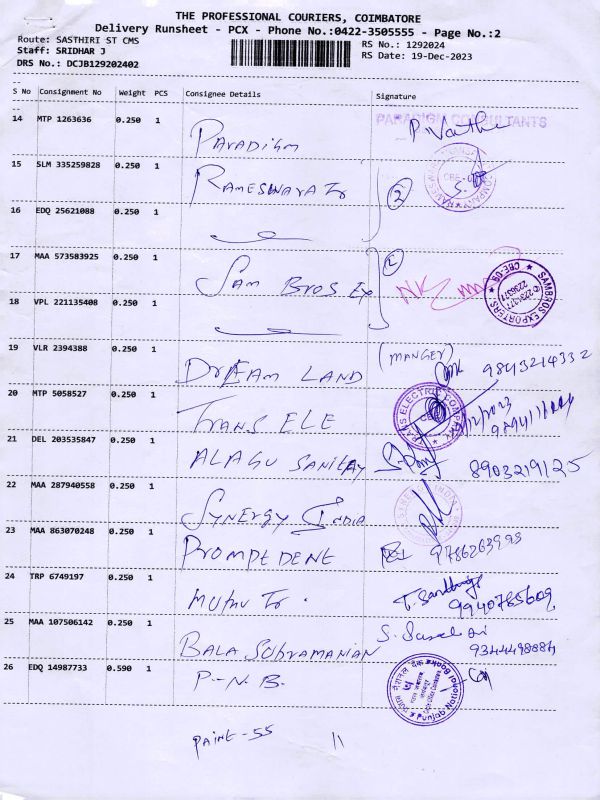 THE PROFESSIONAL COURIERS, COIMBATORE
Delivery Runsheet - PCX - Phone No.:0422-3505555 - Page No.:2
Route: SASTHIRI ST CMS
RS No.: 1292024
Staff: SRIDHAR J
RS Date: 19-Dec-2023
DRS No.: DCJB129202402
S No Consignment No Weight PCS Consignee Details Signature
14 MTP 1263636 0.250 1 PARADIGM PARADIGM CONSULTANTS
15 SLM 335259828 0.250 1 RAMESWARA Tr 2
16 EDQ 25621088 0.250 1
17 MAA 573583925 0.250 1 SAM BROS EX 2 SAMBROS EXPORTERS CBE-08
18 VPL 221135408 0.250 1
19 VLR 2394388 0.250 1 DREAM LAND (MANGER) 9843214332
20 MTP 5058527 0.250 1 TRANS ELE TRANS ELECTRIC COMPANY
21 DEL 203535847 0.250 1 ALAGU SANITAY 8903219125
22 MAA 287940558 0.250 1 SYNERGY INDIA
23 MAA 863070248 0.250 1 PROMPT DENT
24 TRP 6749197 0.250 1 MUTHU Tr. 9940765609
25 MAA 107506142 0.250 1 BALA SUBRAMANIAN 9344498884
26 EDQ 14987733 0.590 1 P.N.B. Punjab National Bank
PAINE-55 11